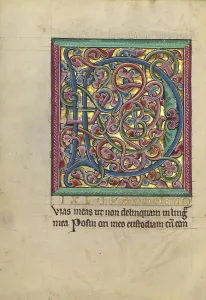 D
IXI
vias meas ut non delinquam in ling
mea Posui ori meo custodiam cū con